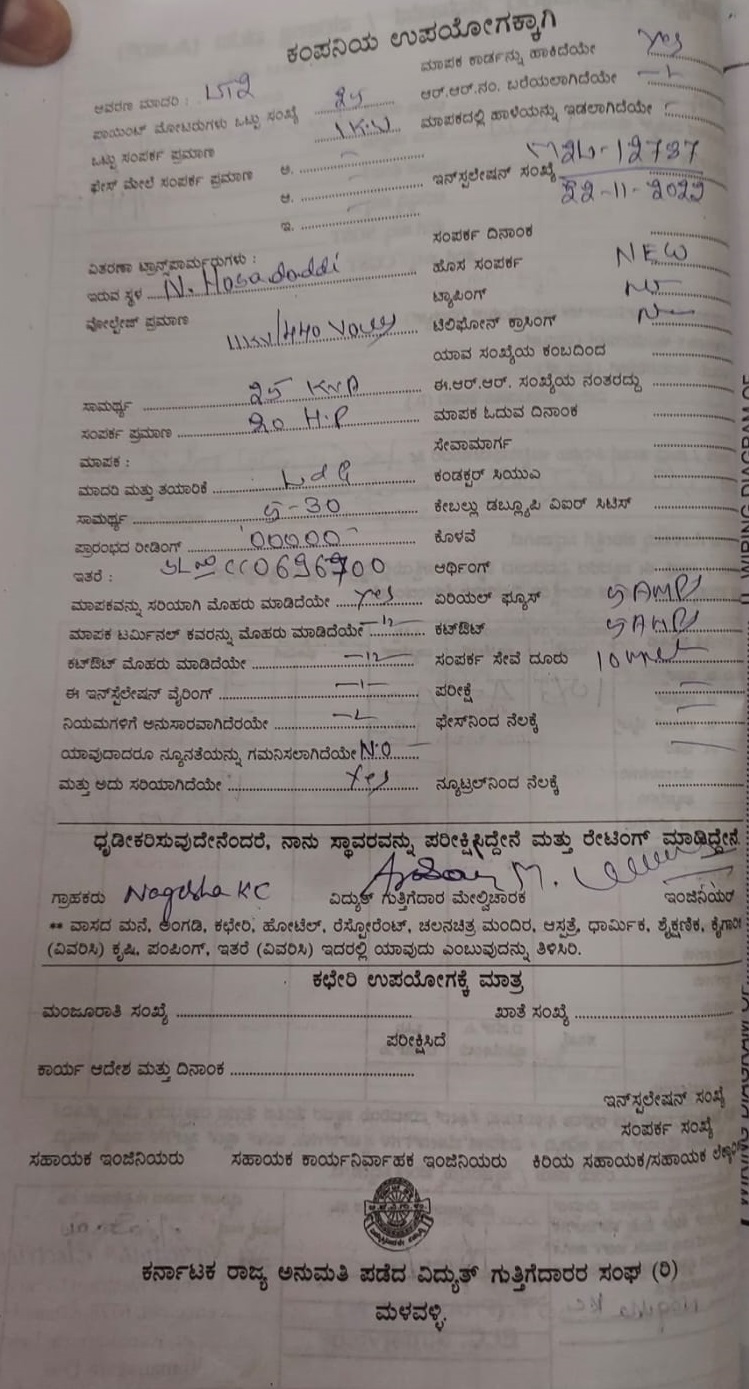 ಕಂಪನಿಯ ಉಪಯೋಗಕ್ಕಾಗಿ
ಆವರಣ ಮಾದರಿ : LT2
ಮಾಪಕ ಕಾರ್ಡನ್ನು ಹಾಕಿದೆಯೇ Yes
ಪಾಯಿಂಟ್ ಮೋಟರುಗಳು ಒಟ್ಟು ಸಂಖ್ಯೆ
ಆರ್.ಆರ್.ನಂ. ಬರೆಯಲಾಗಿದೆಯೇ
ಒಟ್ಟು ಸಂಪರ್ಕ ಪ್ರಮಾಣ 1KW
ಮಾಪಕದಲ್ಲಿ ಹಾಳೆಯನ್ನು ಇಡಲಾಗಿದೆಯೇ
ಫೇಸ್ ಮೇಲೆ ಸಂಪರ್ಕ ಪ್ರಮಾಣ ಅ.
ಆ.
ಇ.
ಇನ್‌ಸ್ಟಲೇಷನ್ ಸಂಖ್ಯೆ 12787
22-11-2022
ಸಂಪರ್ಕ ದಿನಾಂಕ
ವಿತರಣಾ ಟ್ರಾನ್ಸ್‌ಫಾರ್ಮರುಗಳು :
ಹೊಸ ಸಂಪರ್ಕ NEW
ಇರುವ ಸ್ಥಳ N. Hosadoddi
ಟ್ಯಾಪಿಂಗ್
ವೋಲ್ಟೇಜ್ ಪ್ರಮಾಣ 11KV/440 Volts
ಟೆಲಿಫೋನ್ ಕ್ರಾಸಿಂಗ್
ಯಾವ ಸಂಖ್ಯೆಯ ಕಂಬದಿಂದ
ಸಾಮರ್ಥ್ಯ 25 KVA
ಈ.ಆರ್.ಆರ್. ಸಂಖ್ಯೆಯ ನಂತರದ್ದು
ಸಂಪರ್ಕ ಪ್ರಮಾಣ 20 H.P
ಮಾಪಕ ಓದುವ ದಿನಾಂಕ
ಮಾಪಕ :
ಸೇವಾಮಾರ್ಗ
ಮಾದರಿ ಮತ್ತು ತಯಾರಿಕೆ L&G
ಕಂಡಕ್ಟರ್ ಸಿಯುಎ
ಸಾಮರ್ಥ್ಯ 5-30
ಕೇಬಲ್ಲು ಡಬ್ಲ್ಯೂಪಿ ವಿಐರ್ ಸಿಟಿಸ್
ಪ್ರಾರಂಭದ ರೀಡಿಂಗ್ 00000
ಕೊಳವೆ
ಇತರೆ : SL No CC0696700
ಆರ್ಥಿಂಗ್
ಮಾಪಕವನ್ನು ಸರಿಯಾಗಿ ಮೊಹರು ಮಾಡಿದೆಯೇ Yes
ಏರಿಯಲ್ ಫ್ಯೂಸ್ 5AMPS
ಮಾಪಕ ಟರ್ಮಿನಲ್ ಕವರನ್ನು ಮೊಹರು ಮಾಡಿದೆಯೇ
ಕಟ್‌ಔಟ್ 5AMPS
ಕಟ್‌ಔಟ್ ಮೊಹರು ಮಾಡಿದೆಯೇ
ಸಂಪರ್ಕ ಸೇವೆ ದೂರು
ಈ ಇನ್‌ಸ್ಟೆಲೇಷನ್ ವೈರಿಂಗ್
ಪರೀಕ್ಷೆ
ನಿಯಮಗಳಿಗೆ ಅನುಸಾರವಾಗಿದೆರಯೇ
ಫೇಸ್‌ನಿಂದ ನೆಲಕ್ಕೆ
ಯಾವುದಾದರೂ ನ್ಯೂನತೆಯನ್ನು ಗಮನಿಸಲಾಗಿದೆಯೇ N.O
ಮತ್ತು ಅದು ಸರಿಯಾಗಿದೆಯೇ Yes
ನ್ಯೂಟ್ರಲ್‌ನಿಂದ ನೆಲಕ್ಕೆ
ಧೃಡೀಕರಿಸುವುದೇನೆಂದರೆ, ನಾನು ಸ್ಥಾವರವನ್ನು ಪರೀಕ್ಷಿಸಿದ್ದೇನೆ ಮತ್ತು ರೇಟಿಂಗ್ ಮಾಡಿದ್ದೇನೆ.
ಗ್ರಾಹಕರು Nagesha KC
ವಿದ್ಯುತ್ ಗುತ್ತಿಗೆದಾರ ಮೇಲ್ವಿಚಾರಕ
ಇಂಜಿನಿಯರ
** ವಾಸದ ಮನೆ, ಅಂಗಡಿ, ಕಛೇರಿ, ಹೋಟೆಲ್, ರೆಸ್ಟೋರೆಂಟ್, ಚಲನಚಿತ್ರ ಮಂದಿರ, ಆಸ್ಪತ್ರೆ, ಧಾರ್ಮಿಕ, ಶೈಕ್ಷಣಿಕ, ಕೈಗಾರಿ
(ವಿವರಿಸಿ) ಕೃಷಿ, ಪಂಪಿಂಗ್, ಇತರೆ (ವಿವರಿಸಿ) ಇದರಲ್ಲಿ ಯಾವುದು ಎಂಬುವುದನ್ನು ತಿಳಿಸಿರಿ.
ಕಛೇರಿ ಉಪಯೋಗಕ್ಕೆ ಮಾತ್ರ
ಮಂಜೂರಾತಿ ಸಂಖ್ಯೆ
ಖಾತೆ ಸಂಖ್ಯೆ
ಪರೀಕ್ಷಿಸಿದೆ
ಕಾರ್ಯ ಆದೇಶ ಮತ್ತು ದಿನಾಂಕ
ಇನ್‌ಸ್ಪಲೇಷನ್ ಸಂಖ್ಯೆ
ಸಂಪರ್ಕ ಸಂಖ್ಯೆ
ಸಹಾಯಕ ಇಂಜಿನಿಯರು ಸಹಾಯಕ ಕಾರ್ಯನಿರ್ವಾಹಕ ಇಂಜಿನಿಯರು ಕಿರಿಯ ಸಹಾಯಕ/ಸಹಾಯಕ
ಕರ್ನಾಟಕ ರಾಜ್ಯ ಅನುಮತಿ ಪಡೆದ ವಿದ್ಯುತ್ ಗುತ್ತಿಗೆದಾರರ ಸಂಘ (ರಿ)
ಮಳವಳ್ಳಿ.